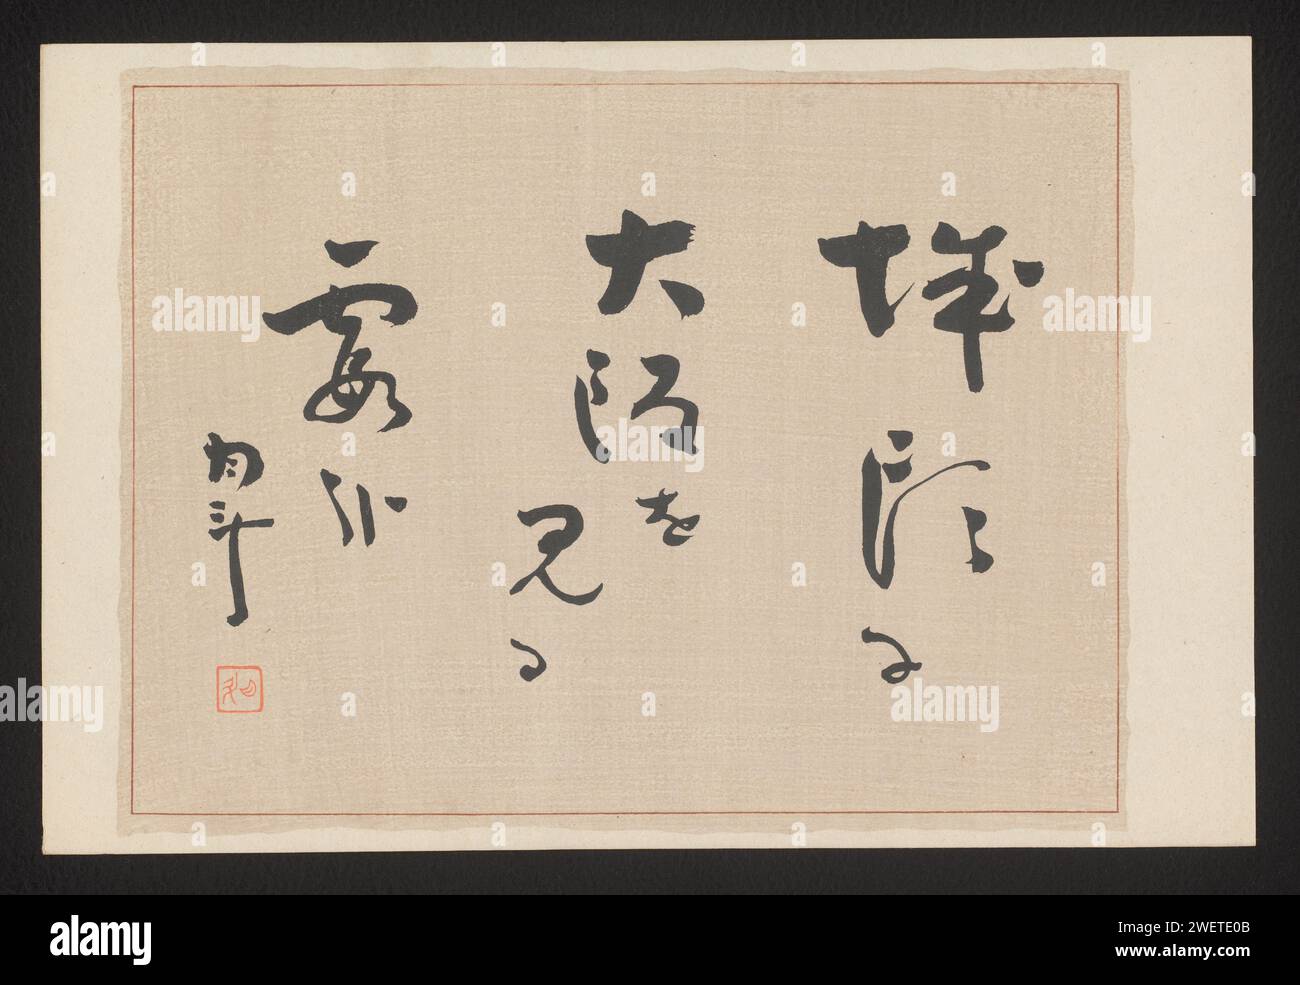 城頭に
大阪を見る
霞
月斗
alamy
Image ID: 2WETE0B
www.alamy.com